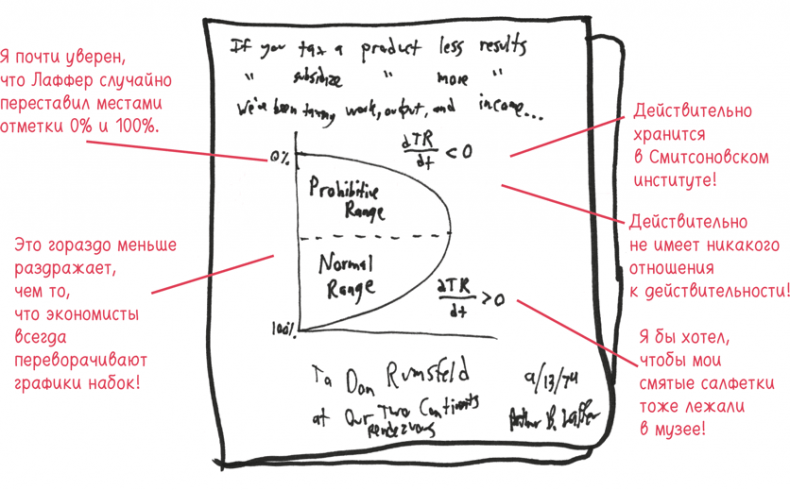 If you tax a product less results
" subsidize " more "
We've been taxing work, output, and income...
Я почти уверен,
что Лаффер случайно
переставил местами
отметки 0% и 100%.
0%
∂TR/∂t < 0
Prohibitive
Range
Normal
Range
∂TR/∂t > 0
100%
Это гораздо меньше
раздражает,
чем то,
что экономисты
всегда
переворачивают
графики набок!
Действительно
хранится
в Смитсоновском
институте!
Действительно
не имеет никакого
отношения
к действительности!
Я бы хотел,
чтобы мои
смятые салфетки
тоже лежали
в музее!
To Don Rumsfeld
at Our Two Continents
Rendezvous
9/13/74
Arthur B. Laffer